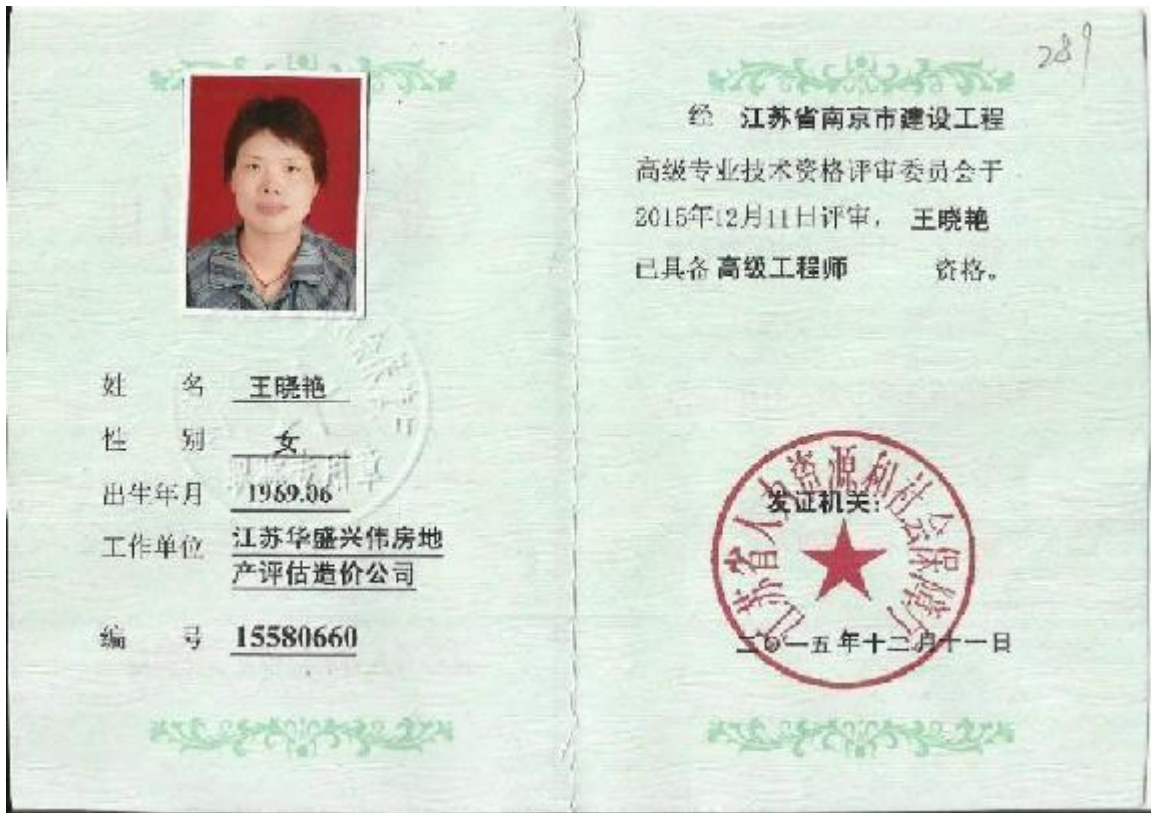 姓 名 王晓艳
性 别 女
出生年月 1969.06
工作单位 江苏华盛兴伟房地
产评估造价公司
编 号 15580660
289
经 江苏省南京市建设工程
高级专业技术资格评审委员会于
2015年12月11日评审, 王晓艳
已具备 高级工程师 资格。
江苏省人力资源和社会保障厅
发证机关:
二〇一五年十二月十一日